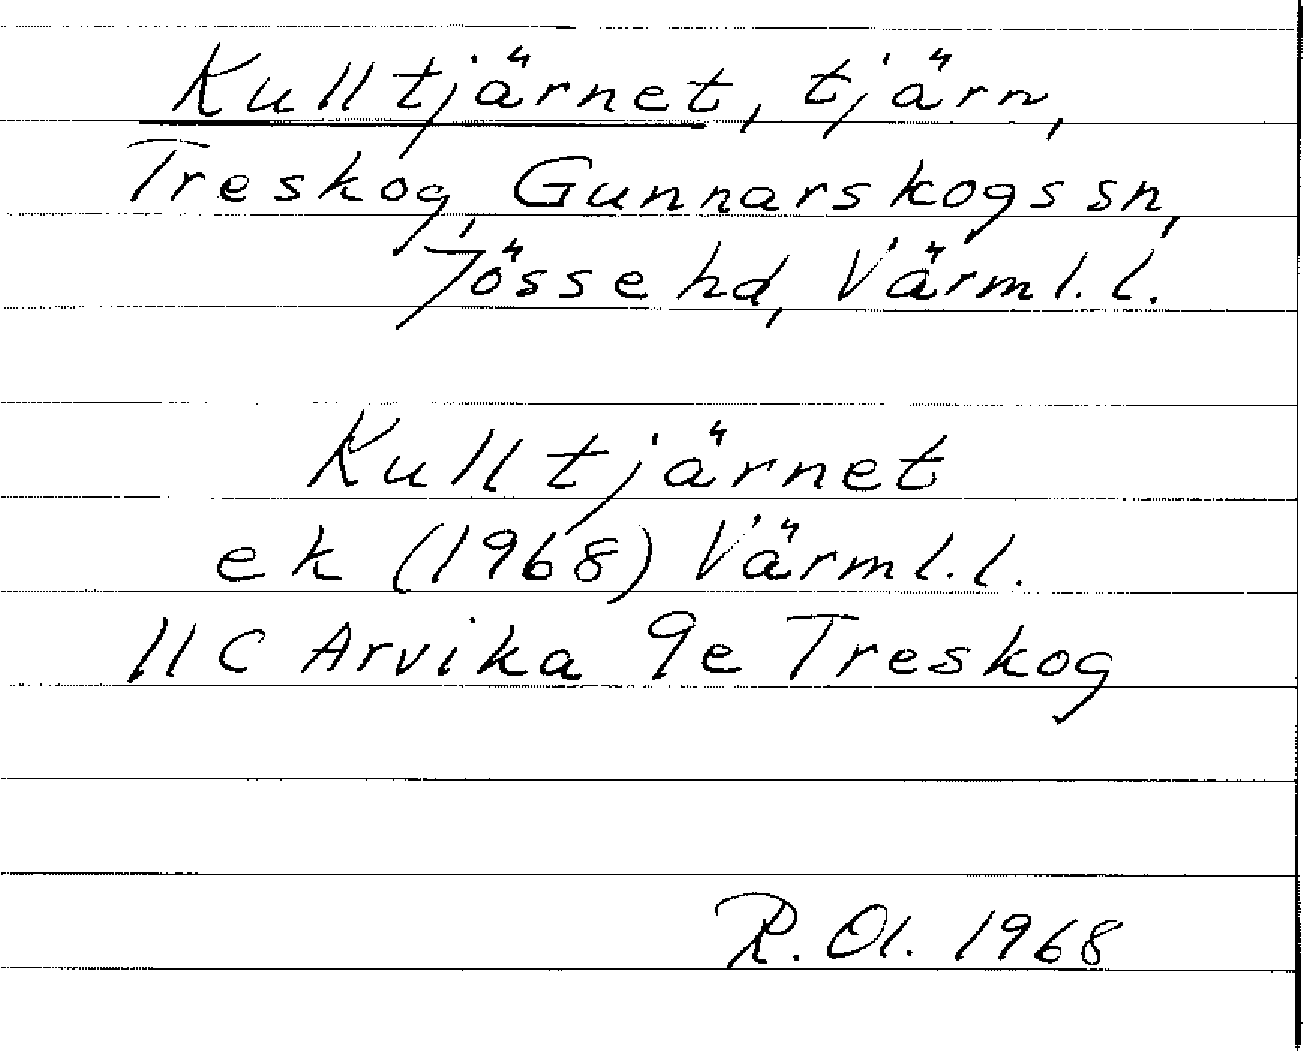 Kulltjärnet, tjärn,
Treskog, Gunnarskogs sn,
Jösse hd, Värml. l.
Kulltjärnet
ek (1968) Värml. l.
11 C Arvika 9e Treskog
R. Ol. 1968